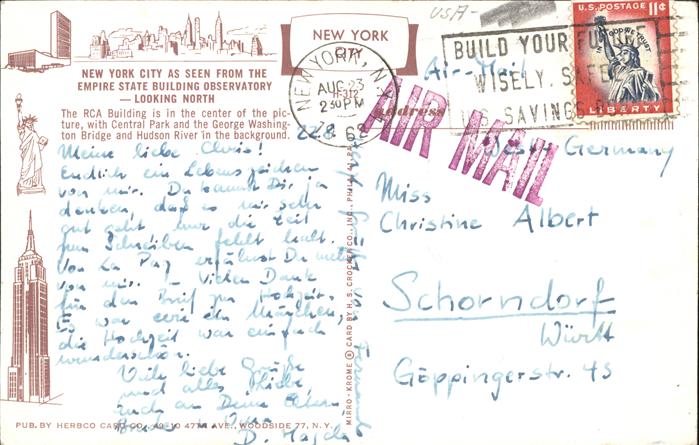 USA-
NEW YORK
CITY
U.S. POSTAGE 11¢
IN GOD WE TRUST
LIBERTY
NEW YORK, N.Y.
AUG 23
2 30 PM
1962
BUILD YOUR FUTURE
WISELY, SAFELY
U.S. SAVINGS
H-312
Air-Mail
address
AIR MAIL
NEW YORK CITY AS SEEN FROM THE
EMPIRE STATE BUILDING OBSERVATORY
— LOOKING NORTH
The RCA Building is in the center of the pic-
ture, with Central Park and the George Washing-
ton Bridge and Hudson River in the background.
22.8. 62
Meine liebe Chris!
Endlich ein Lebenszeichen
von mir. Du kannst Dir ja
denken, daß es mir sehr
gut geht nur die Zeit
zum Schreiben fehlt halt.
Von La Paz erfährst Du mehr
von mir. - Vielen Dank
für den Brief zur Hochzeit.
Es war wie ein Märchen,
die Hochzeit war einfach
wunderschön.
Viele liebe Grüße
und alles Liebe
auch an Deine Eltern
D. Magda
von Fernando
MIRRO-KROME ® CARD BY H. S. CROCKER CO., INC., PHILA., PA.
West-Germany
Miss
Christine Albert
Schorndorf
Württ
Göppingerstr. 45
PUB. BY HERBCO CARD CO., 49-10 47TH AVE., WOODSIDE 77, N.Y.